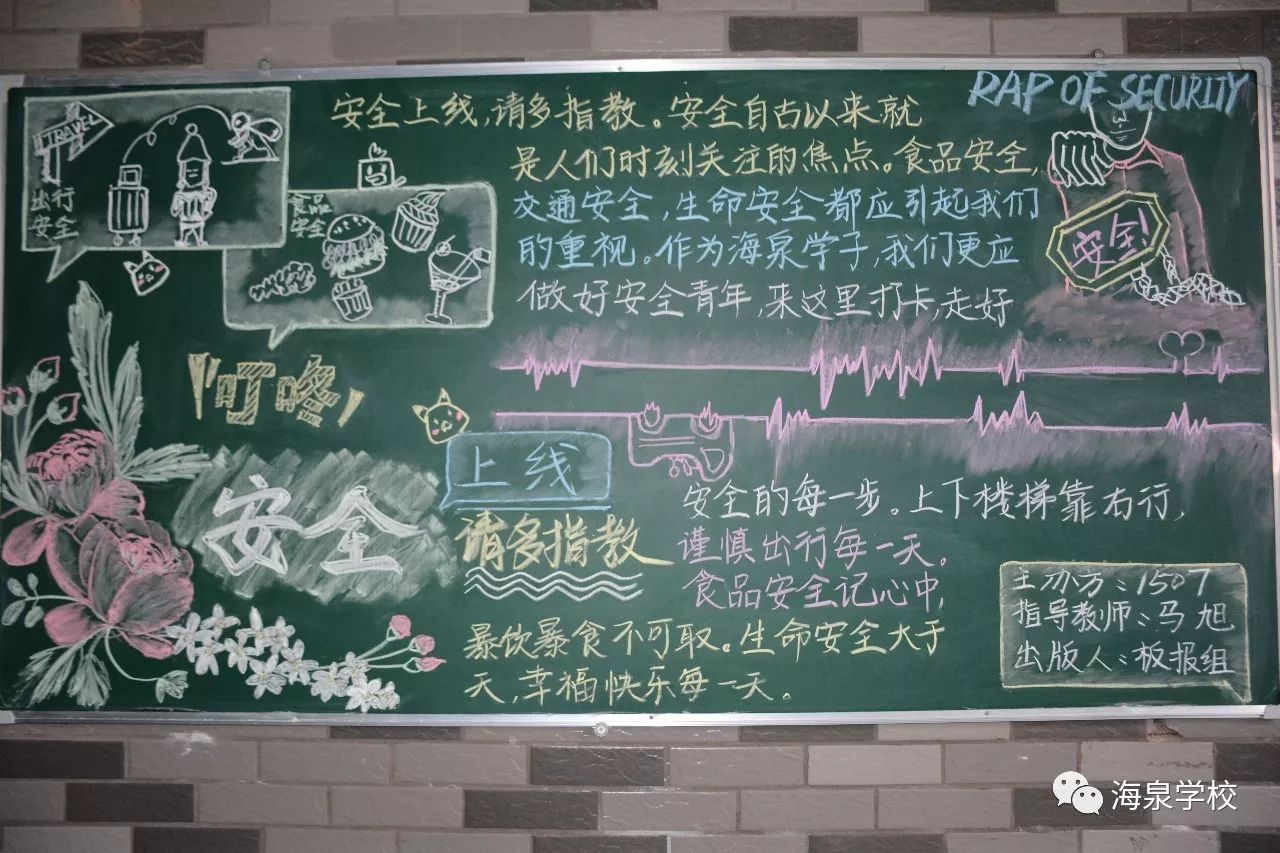 TRAVEL
出行
安全
食品
安全
安全上线,请多指教。安全自古以来就
是人们时刻关注的焦点。食品安全,
交通安全,生命安全都应引起我们
的重视。作为海泉学子,我们更应
做好安全青年,来这里打卡,走好
RAP OF SECURITY
安全!
「叮咚,
安全
上线
请多指教
安全的每一步。上下楼梯靠右行,
谨慎出行每一天。
食品安全记心中,
暴饮暴食不可取。生命安全大于
天,幸福快乐每一天。
主办方:1507
指导教师:马旭
出版人:板报组
海泉学校